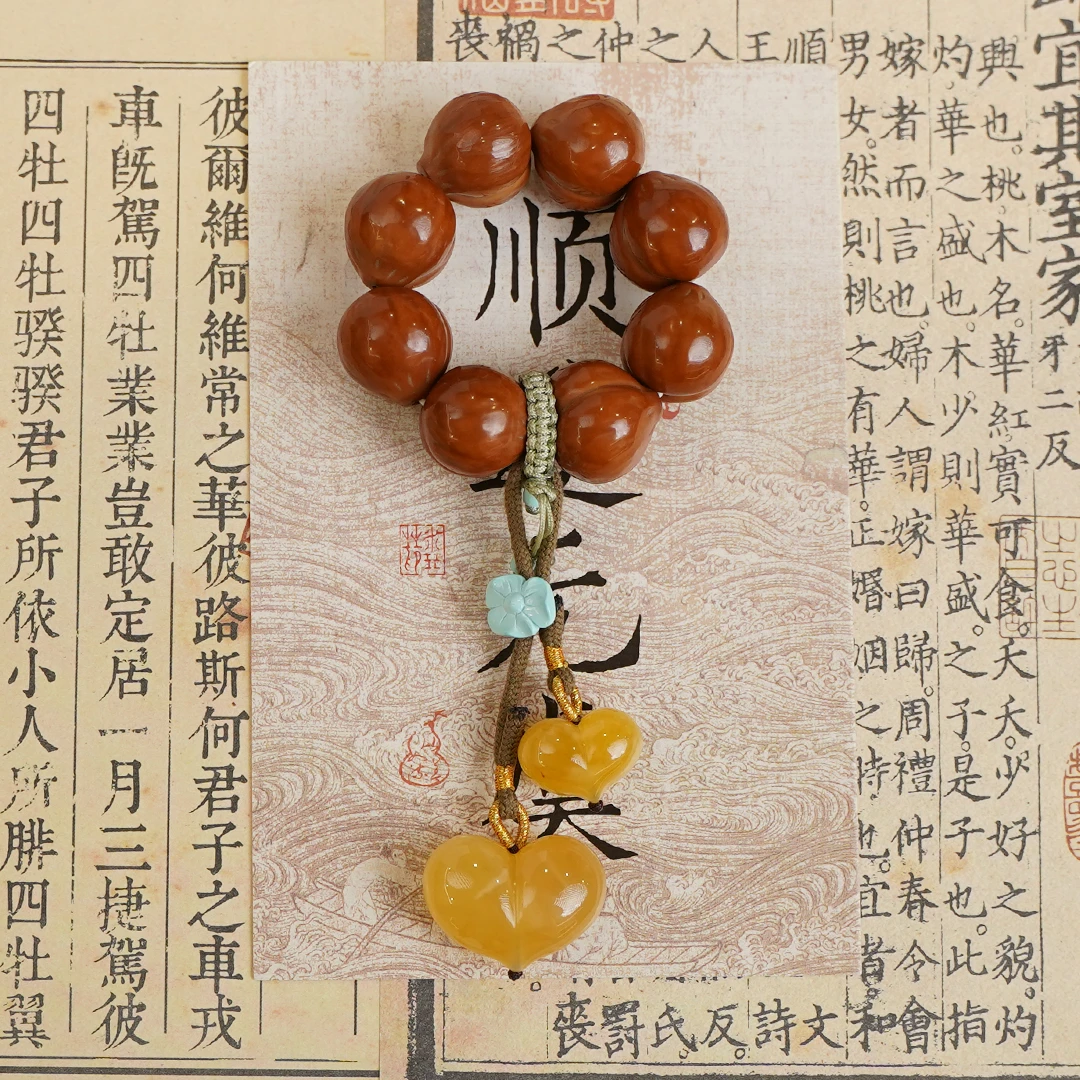 宜其室家
二反
興也。桃木名。華紅實可食。夭夭。少好之貌。灼
灼。華之盛也。木少則華盛。之子。是子也。此指
嫁者而言也。婦人謂嫁曰歸。周禮仲春令會
男女。然則桃之有華。正婚姻之時也。宜者。和
順
王
人
之
仲
之
禍
喪
文
詩
反。
氏
罰
喪
顺
彼爾維何維常之華彼路斯何君子之車戎
車既駕四牡業業豈敢定居一月三捷駕彼
四牡四牡騤騤君子所依小人所腓四牡翼